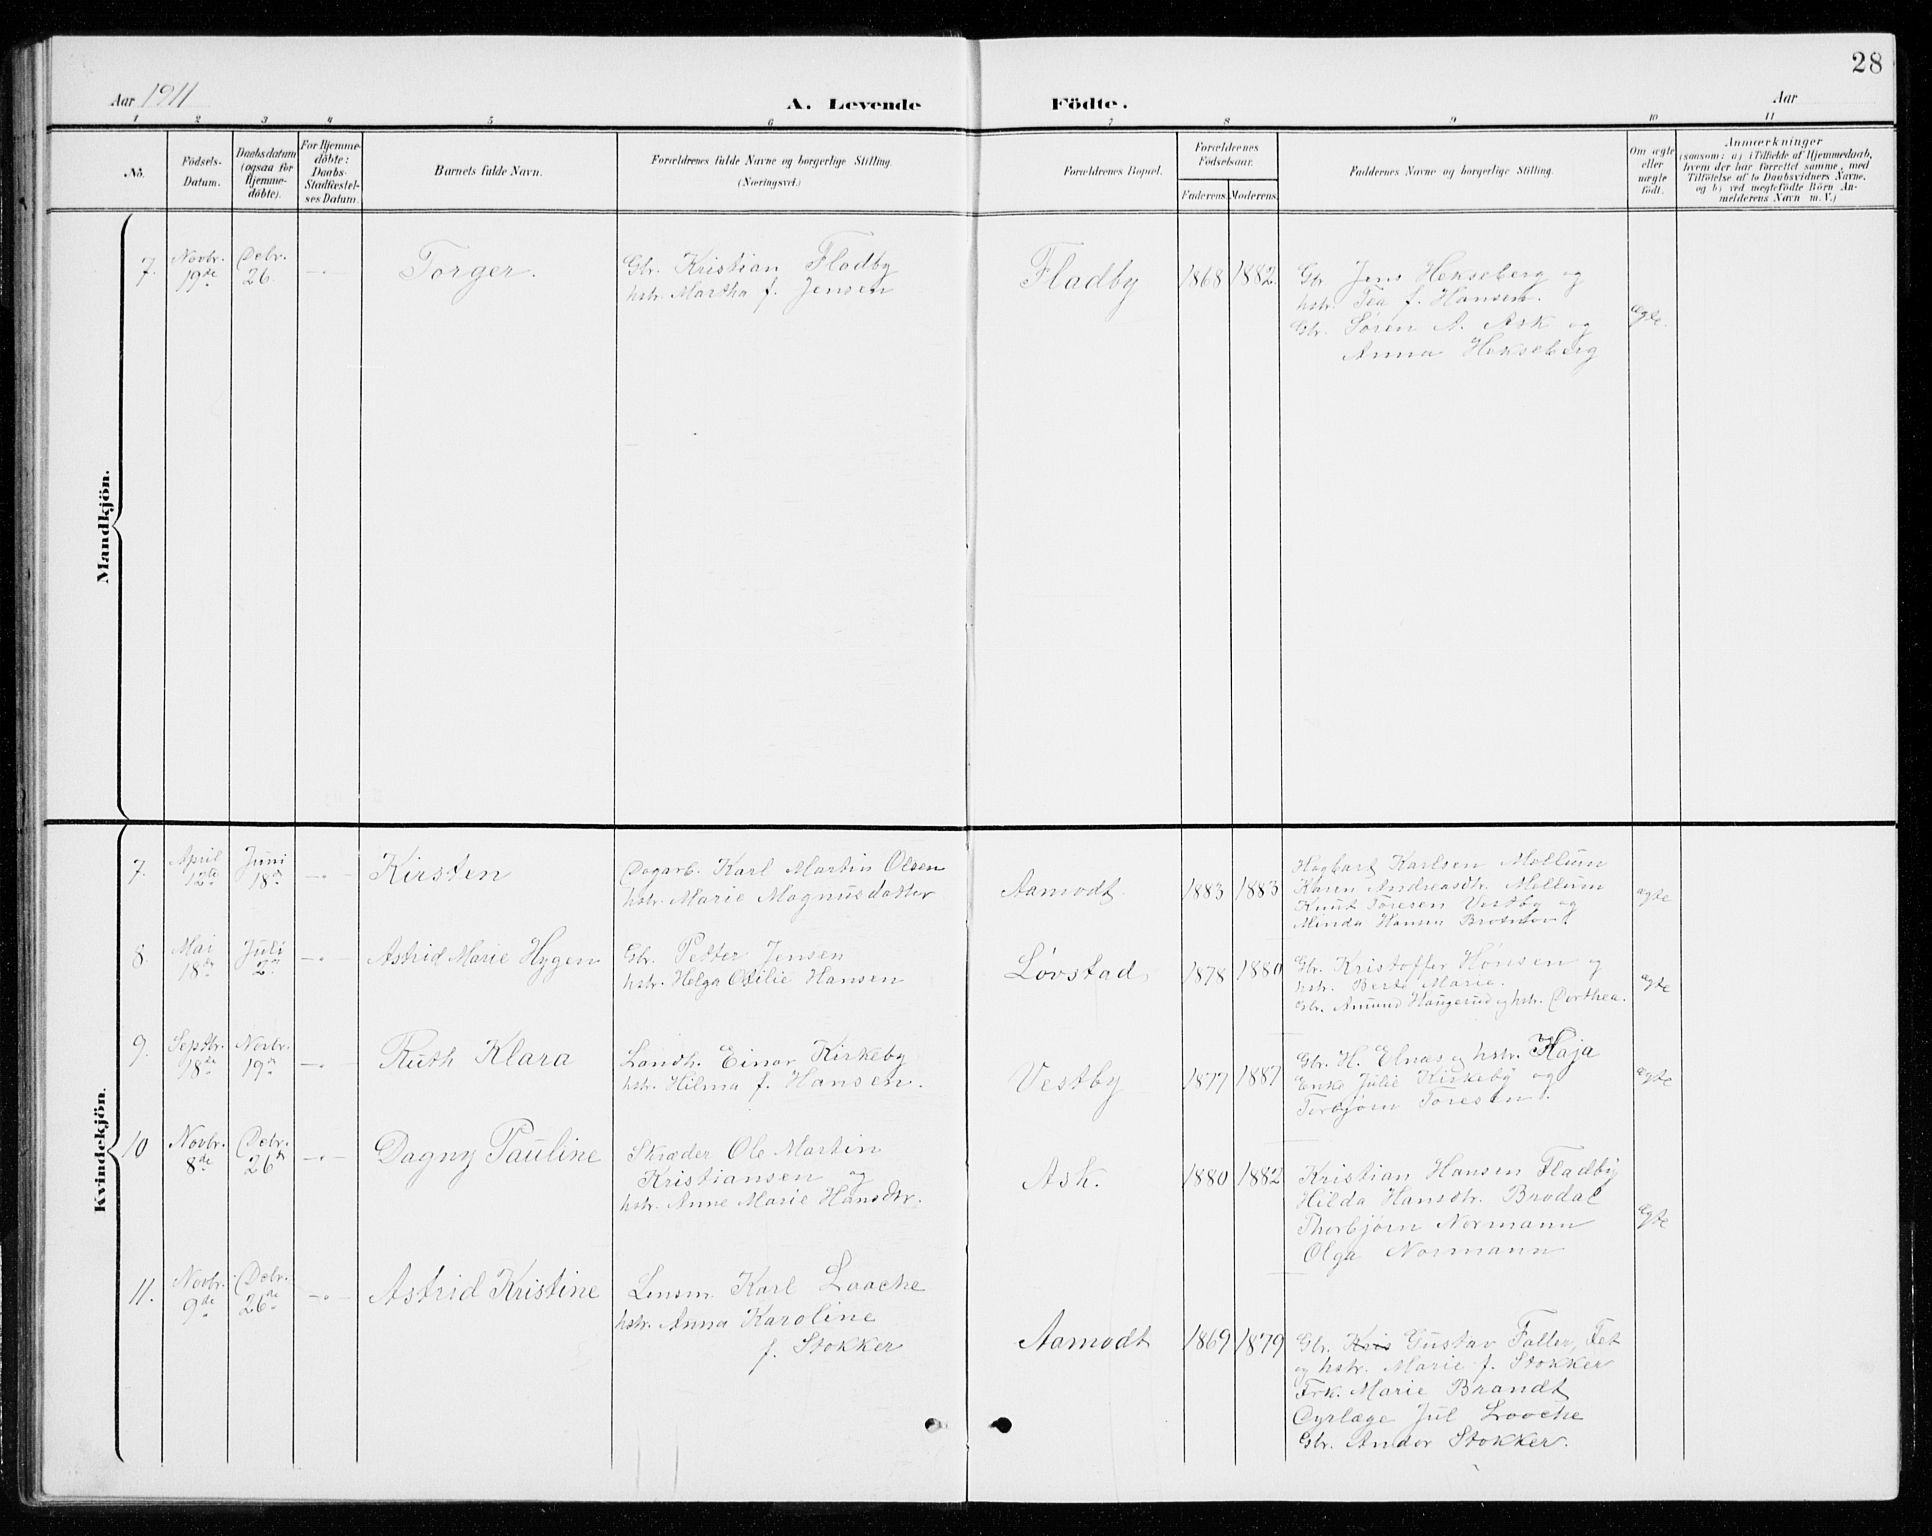 28
Aar 1911
A. Levende
Födte.
Aar
1 2 3 4 5 6 7 8 9 10 11
No.
Födsels-
Datum.
Daabsdatum
(ogsaa for
Hjemme-
döbte).
For Hjemme-
döbte:
Daabs-
Stadfæstel-
ses Datum.
Barnets fulde Navn.
Forældrenes fulde Navne og borgerlige Stilling.
(Næringsvei.)
Forældrenes Bopæl.
Forældrenes
Födselsaar.
Faderens. Moderens.
Faddernes Navne og borgerlige Stilling.
Om ægte
eller
uægte
födt.
Anmærkninger
(saasom: a) i Tilfælde af Hjemmedaab,
hvem der har forrettet samme, med
Tilföielse af to Daabsvidners Navne,
og b) ved uægtefödte Börn An-
melderens Navn m. V.)
Mandkjön.
7. Novbr. 19de
Debr. 26.
Torger.
Gbr. Kristian Fladby
hstr. Martha f. Jensen
Fladby
1868 1882.
Gbr. Jens Hekseberg og
hstr. Tea f. Hansen.
Gbr. Søren A. Ask og
Anna Hekseberg
ægte.
Kvindekjön.
7. April 12te
Juni 18de
Kirsten
Dagarb. Karl Martin Olsen
hstr. Marie Magnusdatter
Aamodt.
1883 1883
Hagbart Karlsen Mellum
Karen Andreasdtr. Mellum
Knut Toresen Vestby og
Minda Hansen
ægte
8. Mai 18de
Juli 2den
Astrid Marie Hygen
Gbr. Petter Jensen
hstr. Helga Otilie Hansen
Løvstad
1878 1880
Gbr. Kristoffer Hansen og
hstr. Berte Marie.
Gbr. Amund Haugerud og hstr. Dorthea.
ægte
9. Septbr. 18de
Novbr. 19de
Ruth Klara
Landh. Einar Kirkeby
hstr. Hilma f. Hansen.
Vestby
1877 1887
Gbr. H. Elnæs og hstr. Kaja
Enke Julie Kirkeby og
Torbjørn Toresen.
ægte
10 Novbr. 8de
Debr. 26de
Dagny Pauline
Skræder Ole Martin
Kristiansen og
hstr. Anne Marie Hansdtr.
Ask.
1880 1882
Kristian Hansen Fladby
Hilda Hansdtr. Brodal
Thorbjørn Normann
Olga Normann
ægte
11. Novbr. 9de
Debr. 26de
Astrid Kristine
Lensm. Karl Laache
hstr. Anna Karoline
f. Stokker
Aamodt
1869 1879
Gbr. Kris Gustav Faller, Fet
og hstr. Marie f. Stokker
Frk. Marie Brandt
Dyrlæge Jul Laache
Gbr. Andor Stokker.